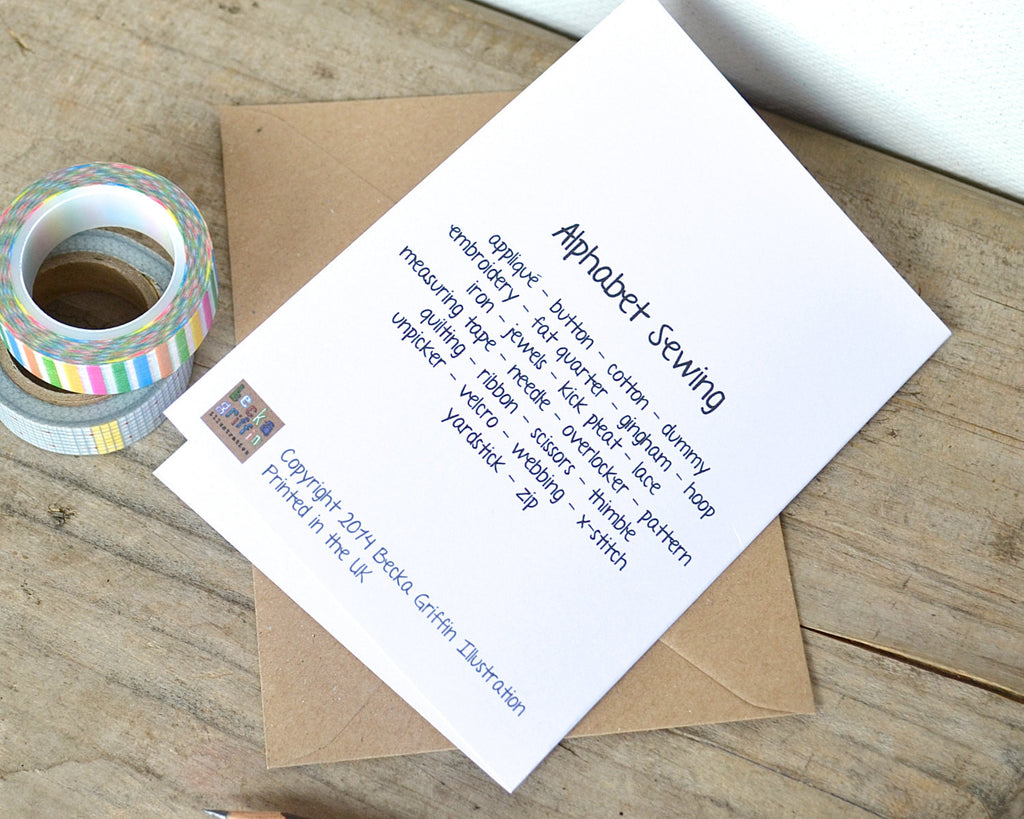 Alphabet Sewing
appliqué - button - cotton - dummy
embroidery - fat quarter - gingham - hoop
iron - jewels - kick pleat - lace
measuring tape - needle - overlocker - pattern
quilting - ribbon - scissors - thimble
unpicker - velcro - webbing - x-stitch
yardstick - zip
becka
griffin
illustration
Copyright 2014 Becka Griffin Illustration
Printed in the UK